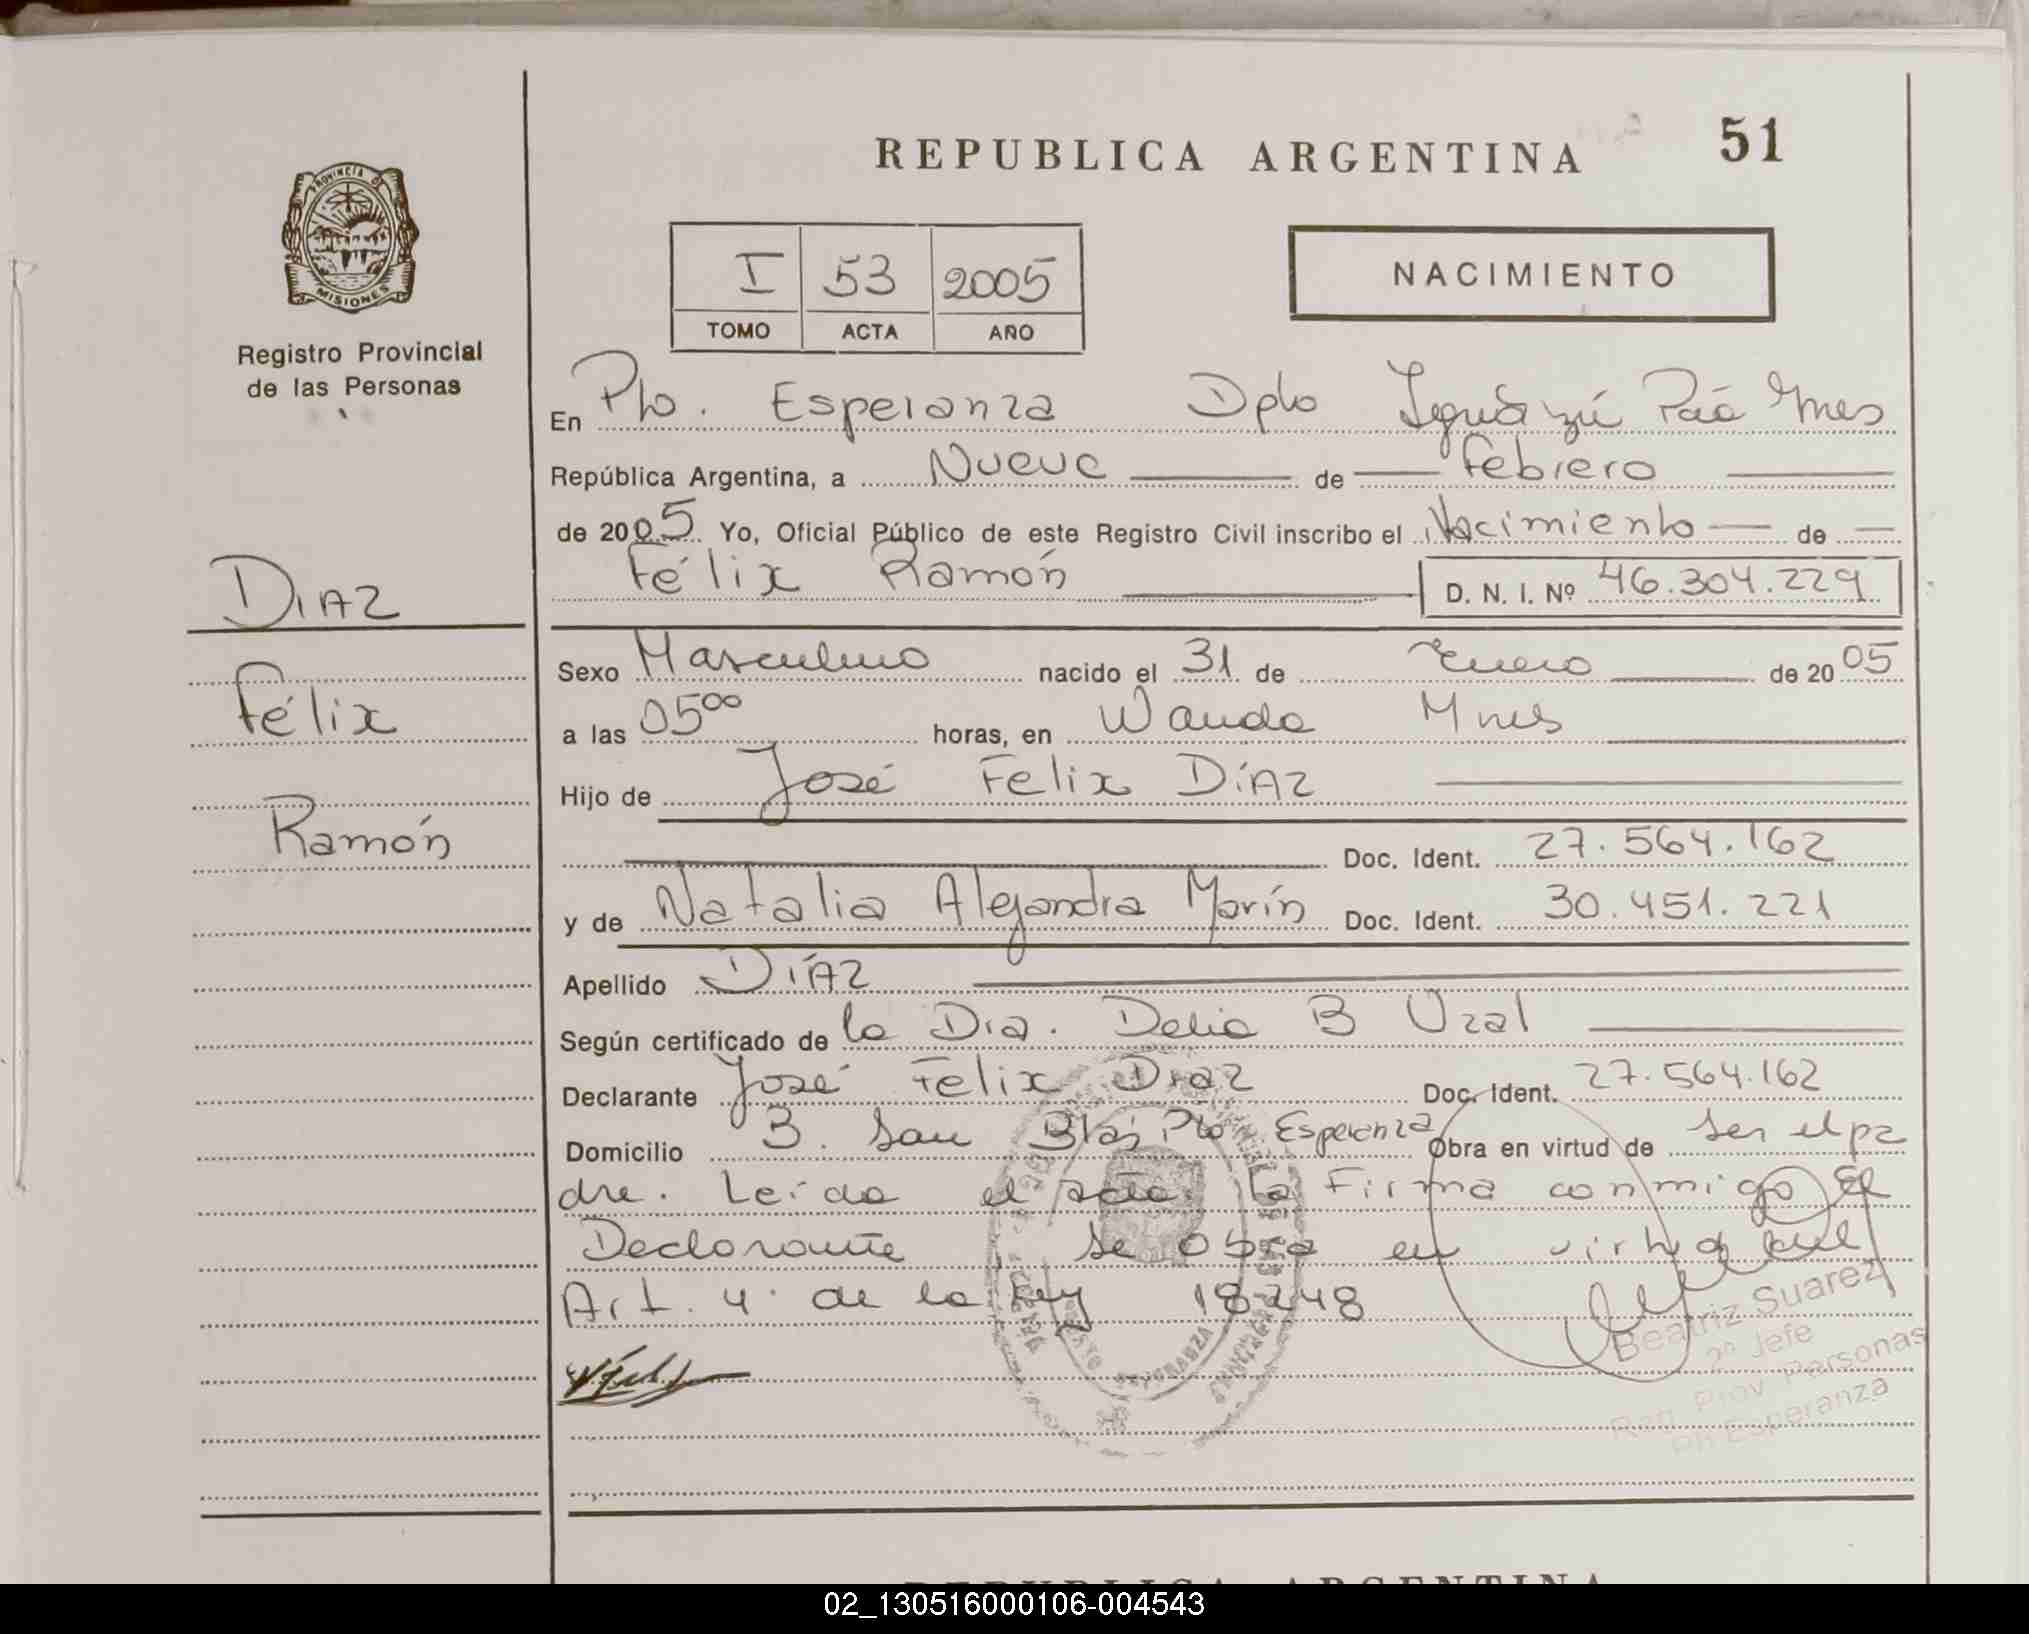 REPUBLICA ARGENTINA 51
PROVINCIA DE
MISIONES
Registro Provincial
de las Personas
I 53 2005
TOMO ACTA AÑO
NACIMIENTO
En Pto. Esperanza Dpto Iguazú Pcia Mnes
República Argentina, a Nueve de Febrero
de 2005 Yo, Oficial Público de este Registro Civil inscribo el Nacimiento de
Félix Ramón D. N. I. Nº 46.304.229
DIAZ
Félix
Ramón
Sexo Masculino nacido el 31 de Enero de 2005
a las 05⁰⁰ horas, en Wanda Mnes
Hijo de José Felix DíAZ
Doc. Ident. 27.564.162
y de Natalia Alejandra Marín Doc. Ident. 30.451.221
Apellido DíAZ
Según certificado de la Dra. Delia B Uzal
Declarante José Felix Diaz Doc. Ident. 27.564.162
Domicilio B. San Blas Pto Esperanza Obra en virtud de ser el pa
dre. Leída el acta, la Firma conmigo el
Declarante Se obra en virtud del
Art. 4° de la Ley 18248
Beatriz Suarez
2º Jefe
Reg. Prov. Personas
Pto Esperanza
REPUBLICA ARGENTINA
02_130516000106-004543